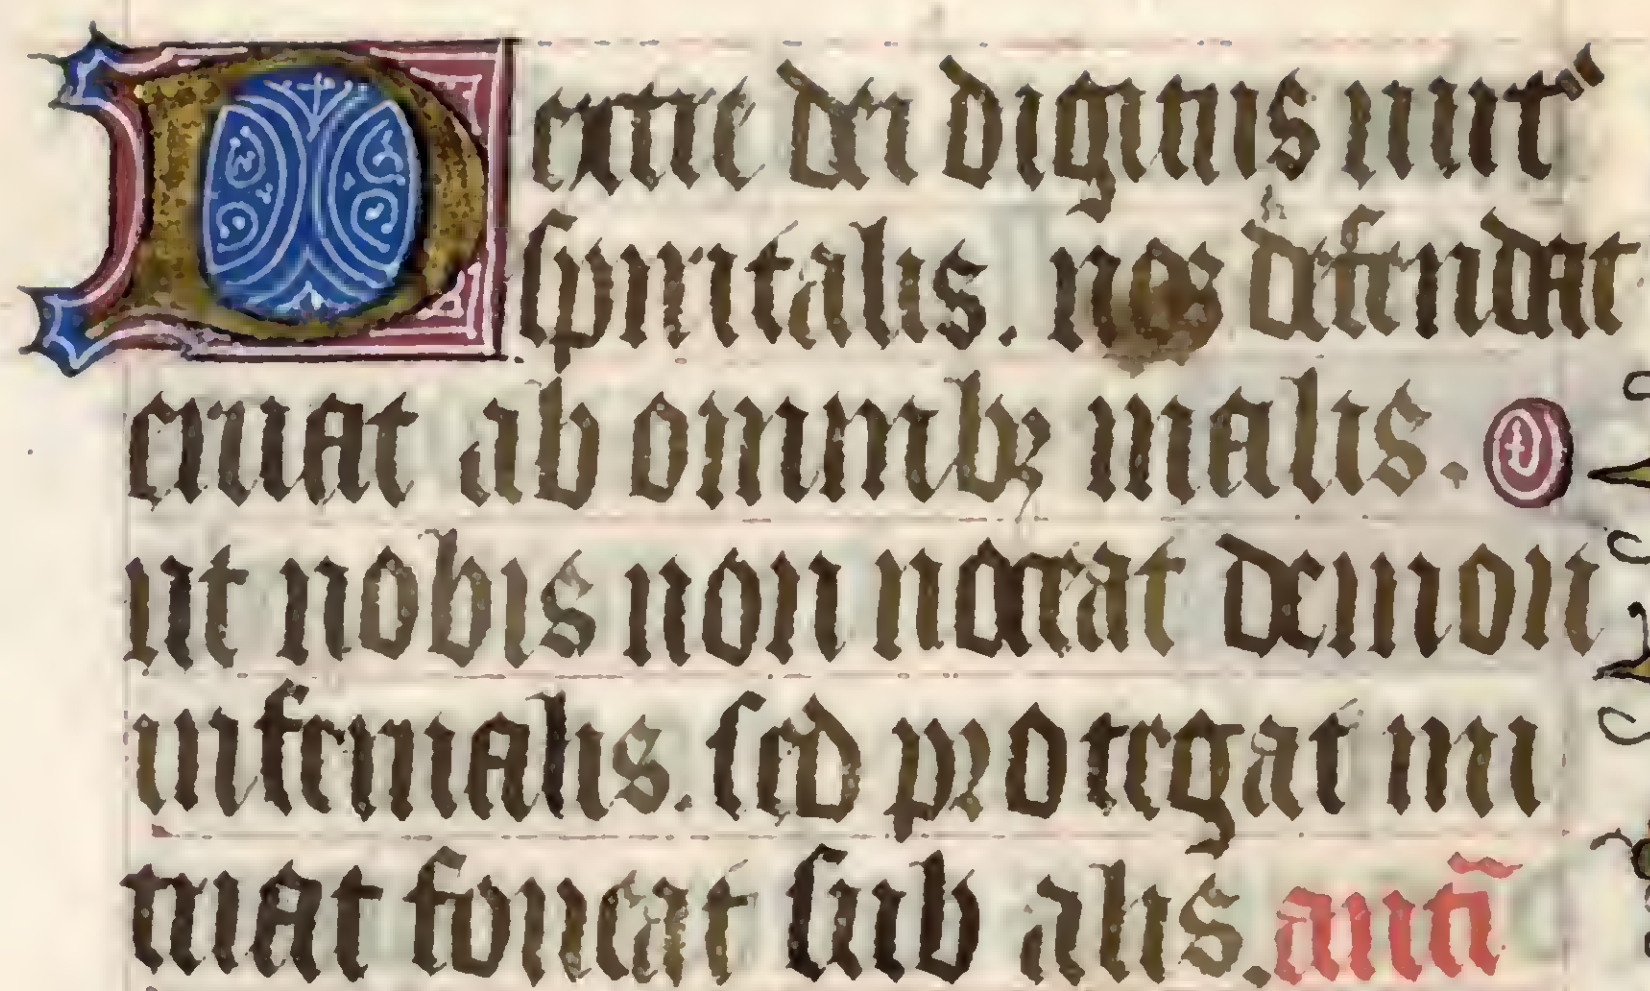 Dextre dei digitus uirt⁹
spiritalis. nos defendat
eruat ab omnibꝫ malis.
ut nobis non noceat demon
infernalis. sed protegat mu
niat foueat sub alis. añ